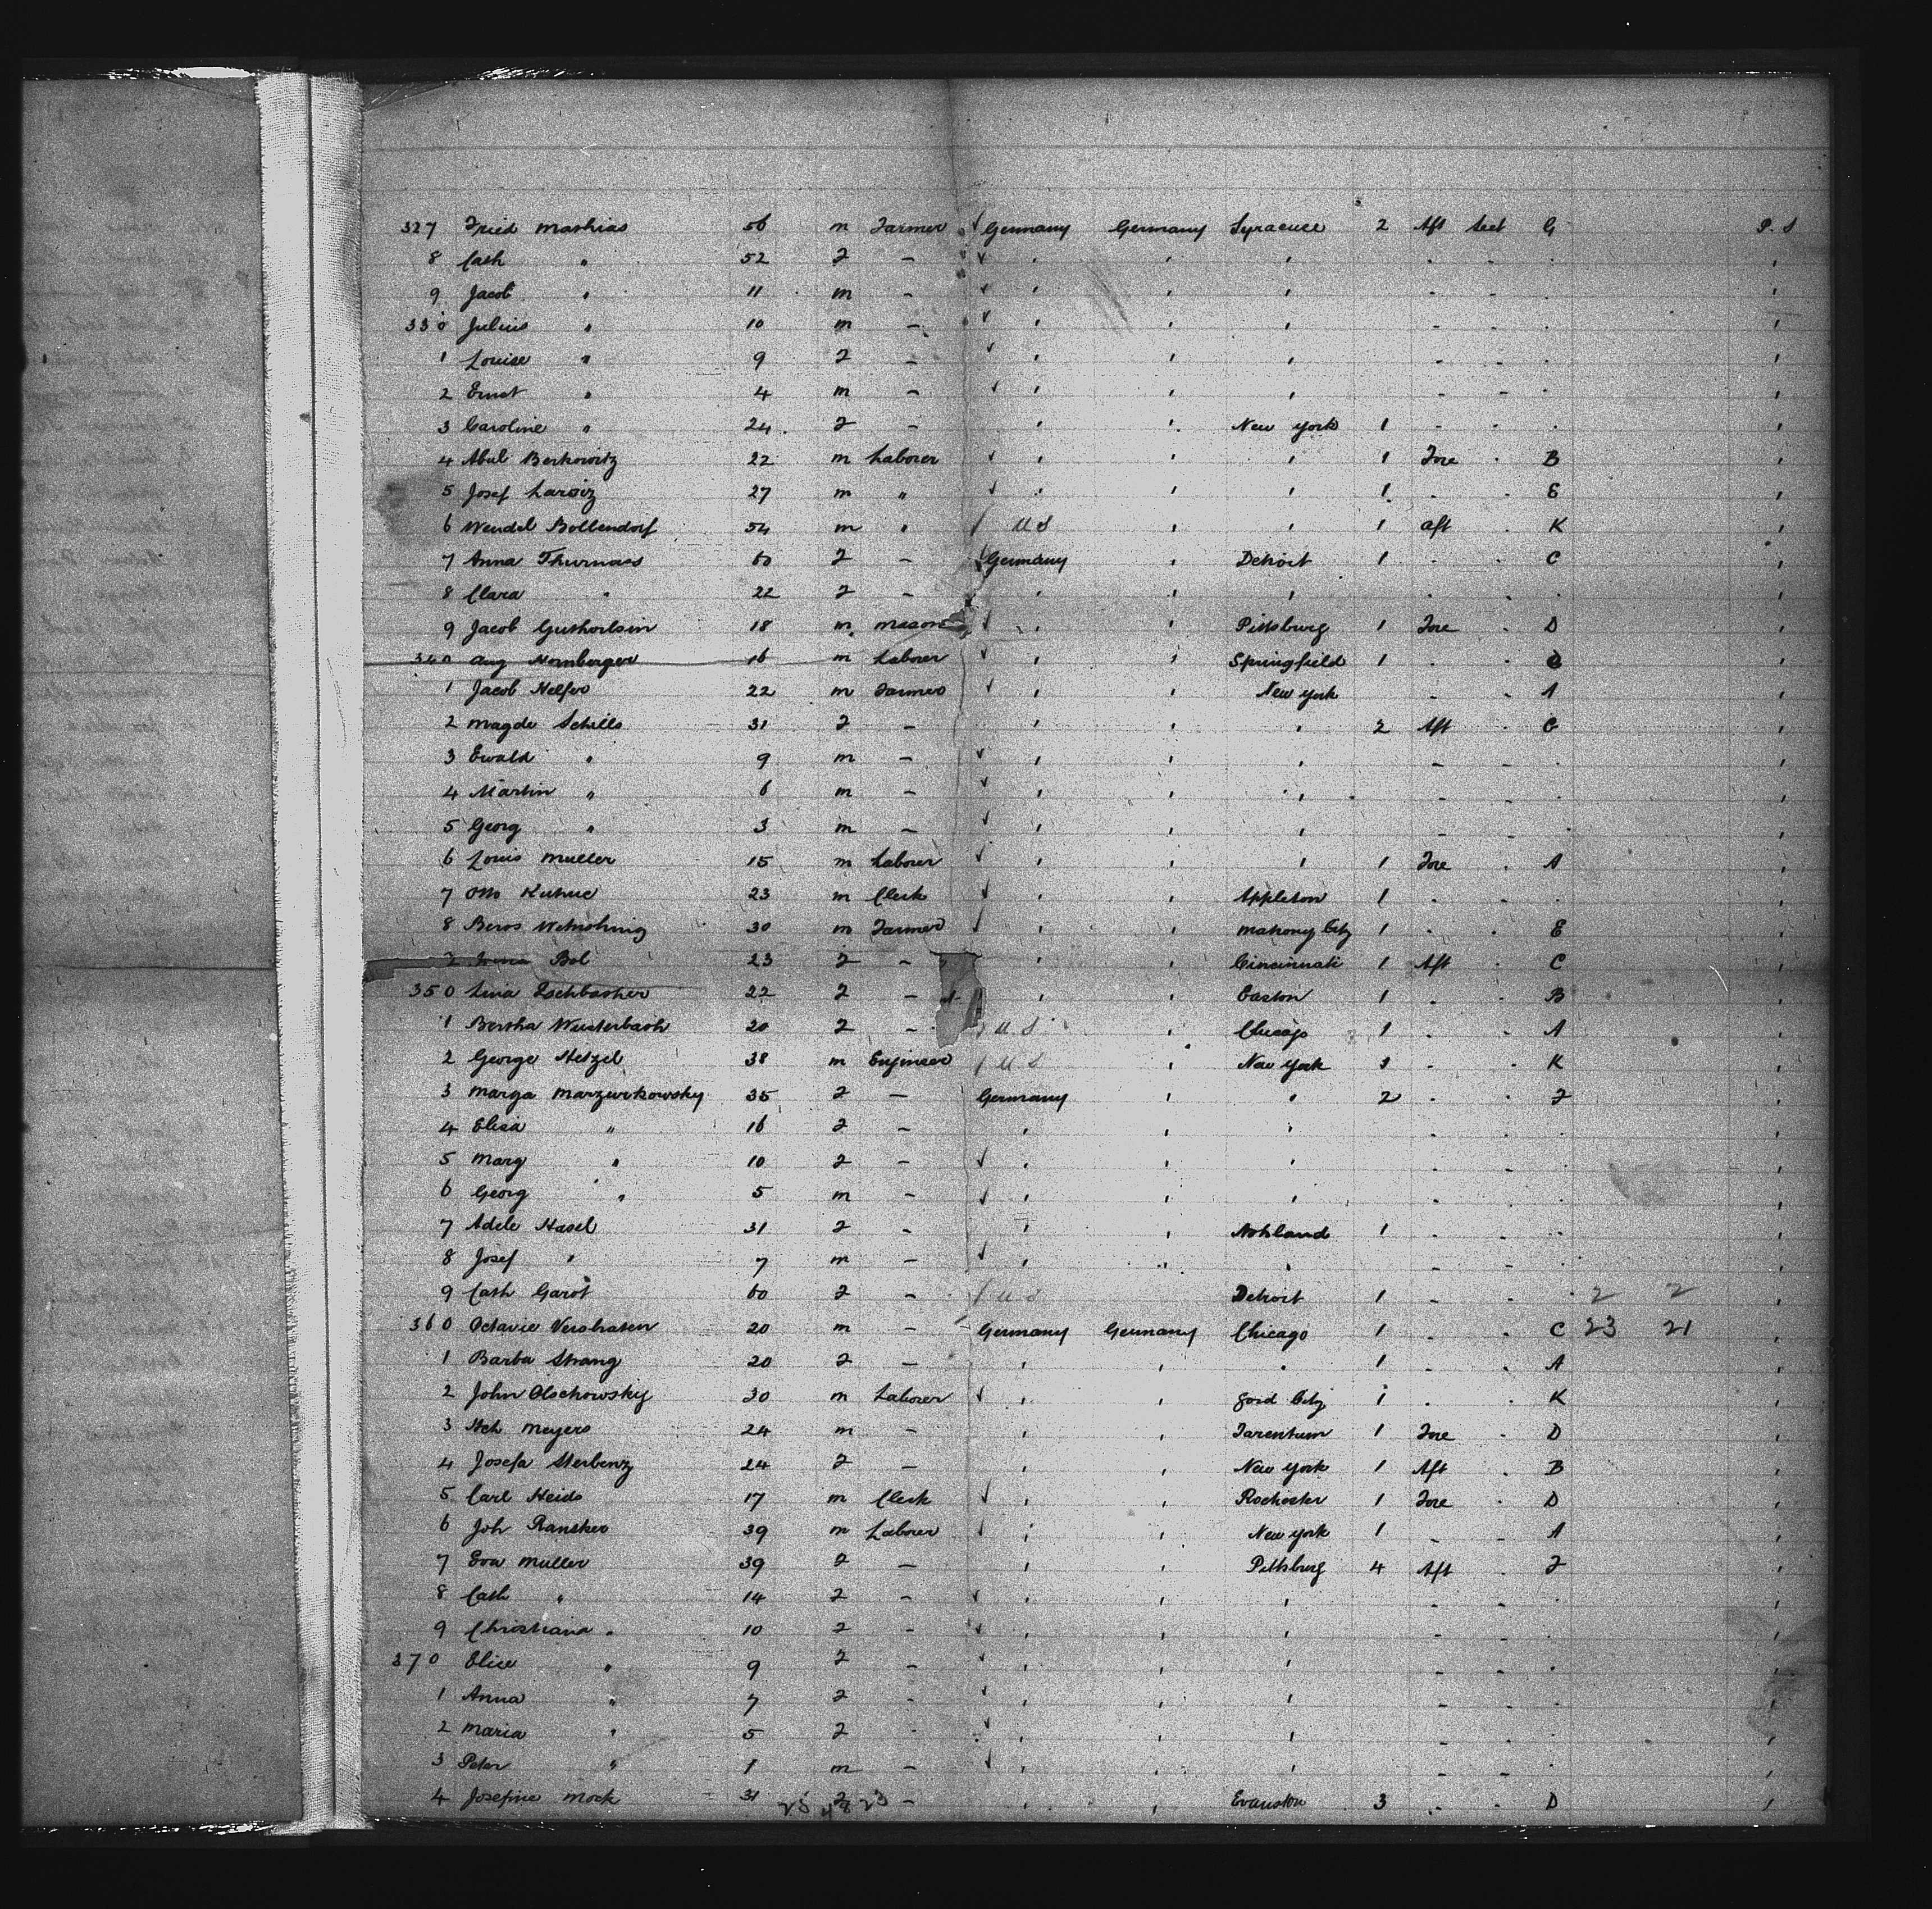 327 Fried Mathias 56 m Farmer ✓ Germany Germany Syracuse 2 Aft Sect G P. S
8 Cath " 52 F - ✓ ' ' ' - - . '
9 Jacob " 11 m - ✓ ' ' ' - - . '
330 Julius " 10 m - ✓ ' ' ' - - . '
1 Louise " 9 F - ✓ ' ' ' - - . '
2 Ernst " 4 m - ✓ ' ' ' - - . '
3 Caroline " 24 F - ' ' New York 1 - - . '
4 Abul Berkowitz 22 m Laborer ✓ ' ' ' 1 Fore . B '
5 Josef 27 m " ✓ ' ' ' 1 . . E '
6 Wendel Bollendorf 54 m " / U S ' ' 1 aft . K '
7 Anna Thurnaes 60 F - Germany ' Detroit 1 - . C '
8 Clara " 22 F - ' ' ' . . . '
9 Jacob 18 m Mason ✓ ' ' Pittsburg 1 Fore . D '
340 Aug Hornberger 16 m Laborer ✓ ' ' Springfield 1 . . '
1 Jacob Helfer 22 m Farmer ✓ ' ' New York - - A '
2 Magde Schills 31 F - ' ' ' 2 Aft . G '
3 Ewald " 9 m - ✓ ' ' ' - - . '
4 Martin " 6 m - ✓ ' ' ' - - . '
5 Georg " 3 m - ✓ ' ' ' - - . '
6 Louis Muller 15 m Laborer ✓ ' ' ' 1 Fore . A '
7 Otto 23 m Clerk ✓ ' ' Appleton 1 . . . '
8 30 m Farmer ✓ ' ' Mahony City 1 . . E '
Bol 23 F - ' ' Cincinnati 1 Aft . C '
350 Lina Eschbacher 22 F - ' ' Easton 1 . . B '
1 Bertha Wusterbach 20 F - / U S ' Chicago 1 . . A '
2 George Hetzel 38 m Engineer / U S ' New York 3 . . K '
3 Marga Marzurkowsky 35 F - Germany ' ' 2 . . F '
4 Elisa " 16 F - ' ' ' . . . '
5 Marg " 10 F - ✓ ' ' ' . . . '
6 Georg " 5 m - ✓ ' ' ' . . . '
7 Adele Hasel 31 F - ' ' Ashland 1 . . . '
8 Josef " 7 m - ✓ ' ' ' - - . '
9 Cath Garot 60 F - / U S Detroit 1 - . . 2 2 '
360 Octavie 20 m - Germany Germany Chicago 1 . . C 23 21 '
1 Barba Strang 20 F - ' ' ' 1 - . A '
2 John Olschowsky 30 m Laborer ✓ ' ' Good City 1 . . K '
3 Meyers 24 m - ' ' Tarentum 1 Fore . D '
4 Josefa Sterbenz 24 F - ' ' New York 1 Aft . B '
5 Carl Heids 17 m Clerk ✓ ' ' Rochester 1 Fore . D '
6 Joh Ransker 39 m Laborer ✓ ' ' New York 1 - - A '
7 Eva Muller 39 F - ' ' Pittsburg 4 Aft . F '
8 Cath " 14 F - ✓ ' ' ' - - . '
9 Christiana " 10 F - ✓ ' ' ' - - . '
370 Elise " 9 F - ✓ ' ' ' - - . '
1 Anna " 7 F - ✓ ' ' ' - - . '
2 Maria " 5 F - ✓ ' ' ' - - . '
3 Peter " 1 m - ✓ ' ' ' - - . '
4 Josefine Mock 31 F - ' ' Evanston 3 - . D '
25 48 23